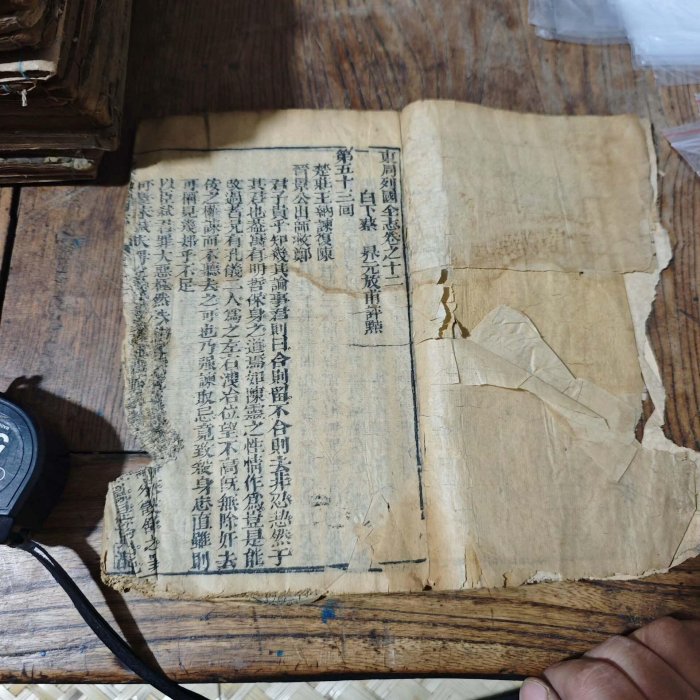 東周列國全志卷之十二
白下蔡 昇元放甫評點
第五十三回
楚莊王納諫復陳
晉景公出師救鄭
君子貴乎知幾其論事君則曰合則留不合則去非恝恝然于
其君也蓋寓有明哲保身之道焉如陳靈之性情作為豈是能
改過者兄有孔儀二人為之左右洩冶位望不高既無除奸去
佞之權諫而不聽去之可也乃强諫取忌竟致殺身忠直雖則
可稱見幾却乎不足
以臣弒君罪大惡極然